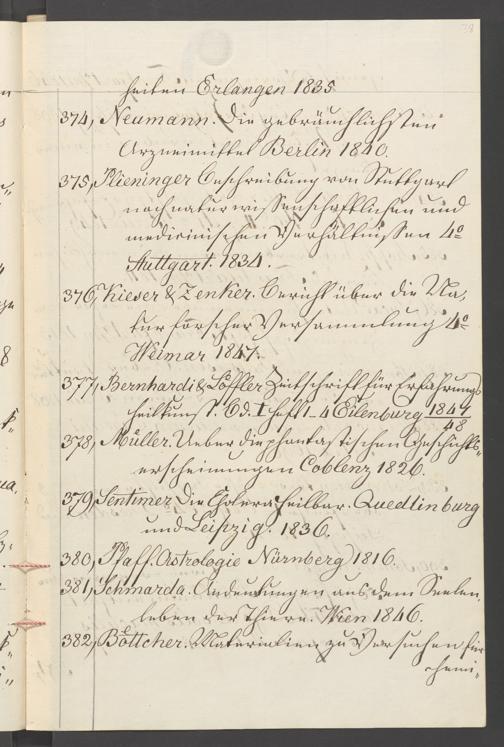 39
heiten Erlangen 1835.
374, Neumann. Die gebräuchlichsten
Arzneimittel Berlin 1840.
375, Plieninger Beschreibung von Stuttgart
nach naturwissenschaftlichen und
medicinischen Verhältnissen 4o
Stuttgart. 1834.
376, Kieser & Zenker. Bericht über die Na-
turforscher Versammlung 4o
Weimar 1847.
377, Bernhardi & Löffler Zeitschrift für Erfahrungs-
heilkunst. Bd. I Heft 1-4 Eilenburg 1847/48
378, Müller. Ueber die phantastischen Gesichts-
erscheinungen Coblenz 1826.
379, Sentimer Die Cholera heilbar. Quedlinburg
und Leipzig. 1836.
380, Pfaff. Astrologie Nürnberg 1816.
381, Schmarda. Andeutungen aus dem Seelen-
leben der Thiere. Wien 1846.
382, Böttcher. Materialien zu Versuchen für
chemi-